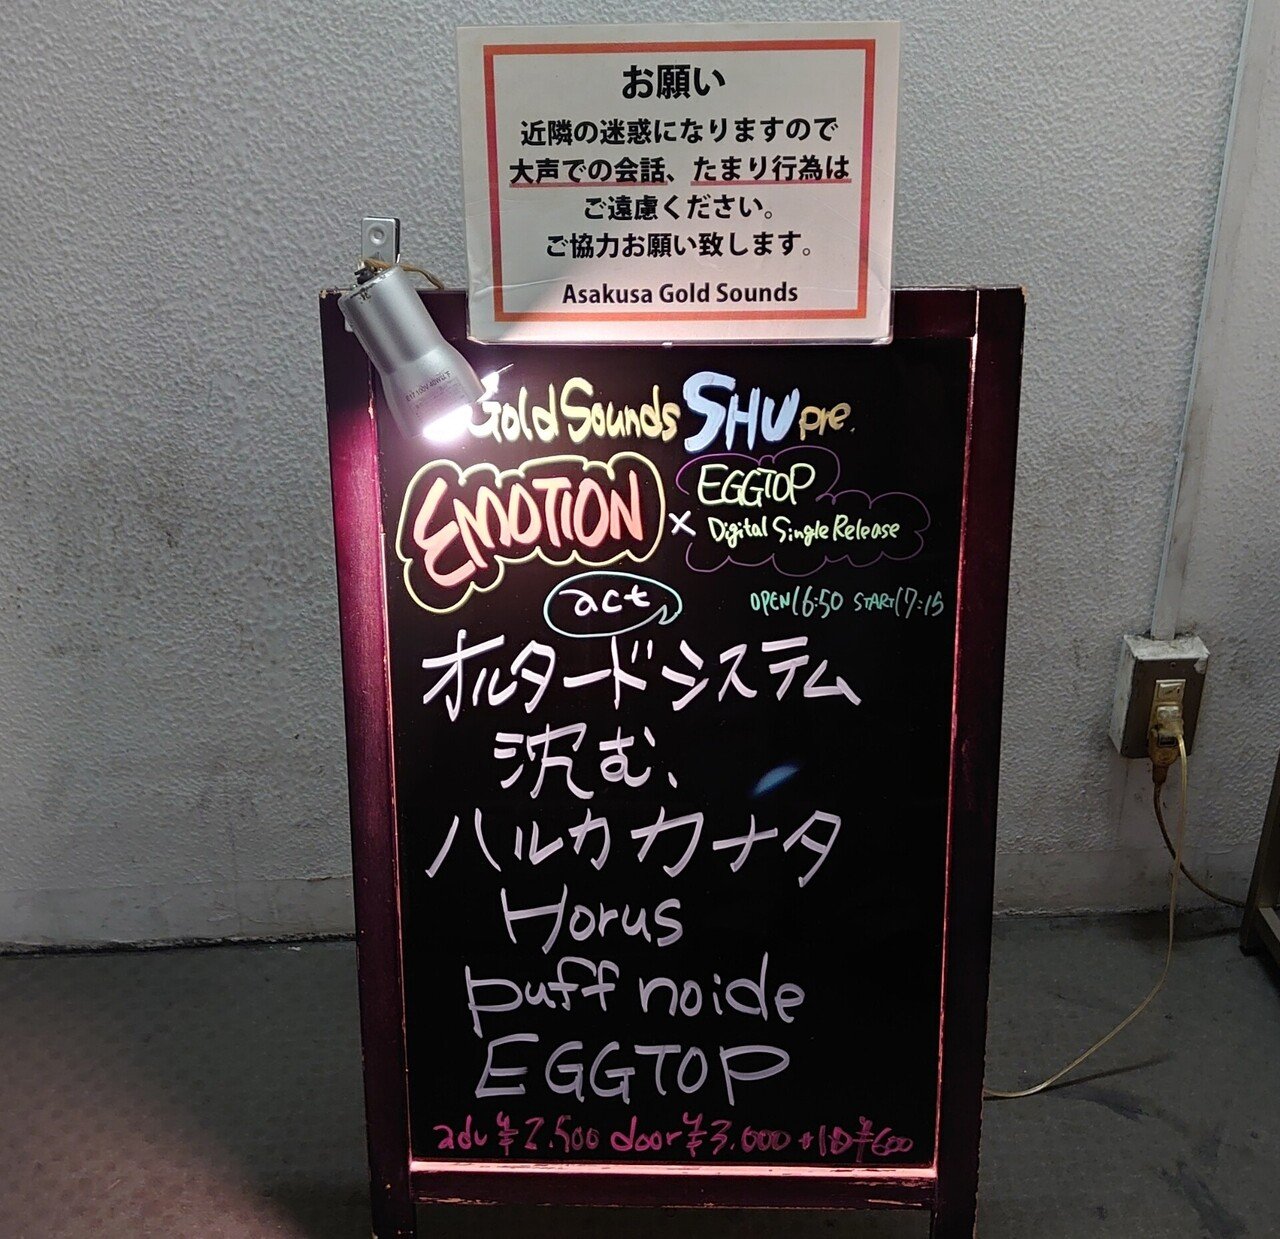 お願い
近隣の迷惑になりますので
大声での会話、たまり行為は
ご遠慮ください。
ご協力お願い致します。
Asakusa Gold Sounds
Gold Sounds SHU pre.
EMOTION × EGGTOP
Digital Single Release
act
OPEN16:50 START17:15
オルタードシステム
沈む、
ハルカカナタ
Horus
puff noide
EGGTOP
adv ¥2.500 door ¥3.000 +1D¥600